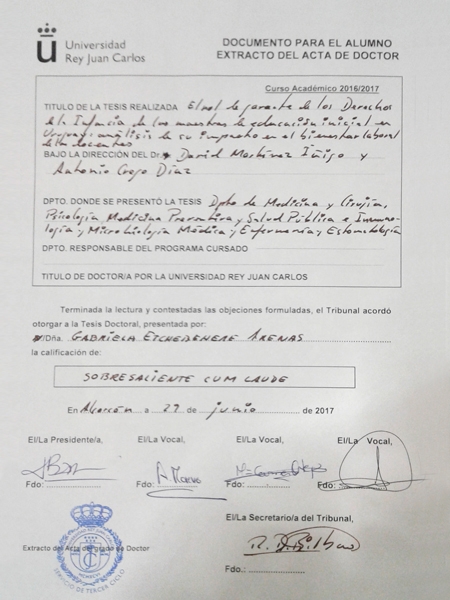 Universidad
Rey Juan Carlos
DOCUMENTO PARA EL ALUMNO
EXTRACTO DEL ACTA DE DOCTOR
Curso Académico 2016/2017
TITULO DE LA TESIS REALIZADA El rol de garante de los Derechos
de la Infancia de los maestros de educación inicial en
Uruguay: análisis de su impacto en el bienestar laboral
de los docentes
BAJO LA DIRECCIÓN DEL Dr. David Martínez Íñigo y
Antonio Crego Díaz
DPTO. DONDE SE PRESENTÓ LA TESIS Dpto de Medicina y Cirugía,
Psicología, Medicina Preventiva y Salud Pública e Inmuno-
logía y Microbiología Médica y Enfermería y Estomatología
DPTO. RESPONSABLE DEL PROGRAMA CURSADO
TITULO DE DOCTOR/A POR LA UNIVERSIDAD REY JUAN CARLOS
Terminada la lectura y contestadas las objeciones formuladas, el Tribunal acordó
otorgar a la Tesis Doctoral, presentada por:
D/Dña. GABRIELA ETCHEBEHERE ARENAS
la calificación de:
SOBRESALIENTE CUM LAUDE
En Alcorcón a 27 de junio de 2017
El/La Presidente/a, El/La Vocal, El/La Vocal, El/La Vocal,
Fdo: Fdo: Fdo: Fdo:
El/La Secretario/a del Tribunal,
Extracto del Acta del grado de Doctor
SERVICIO DE TERCER CICLO
Fdo.: